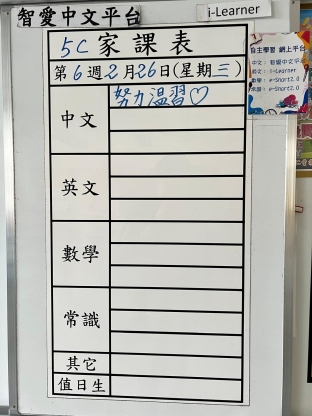 智愛中文平台
i-Learner
5C家課表
第6週2月26日(星期三)
中文
努力溫習♡
英文
數學
常識
其它
值日生
自主學習 網上平台
中文：智愛中文平台
英文：i-Learner
數學：e-Smart2.0
常識：e-Smart2.0